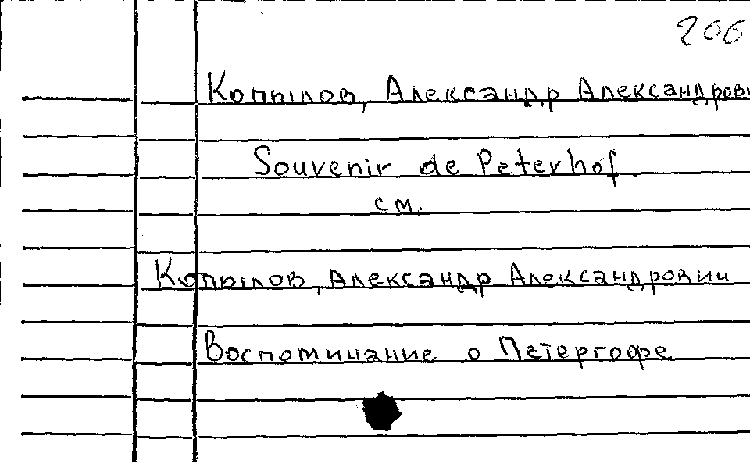 206
Копылов, Александр Александрови
Souvenir de Peterhof.
см.
Копылов, Александр Александрович
Воспоминание о Петергофе